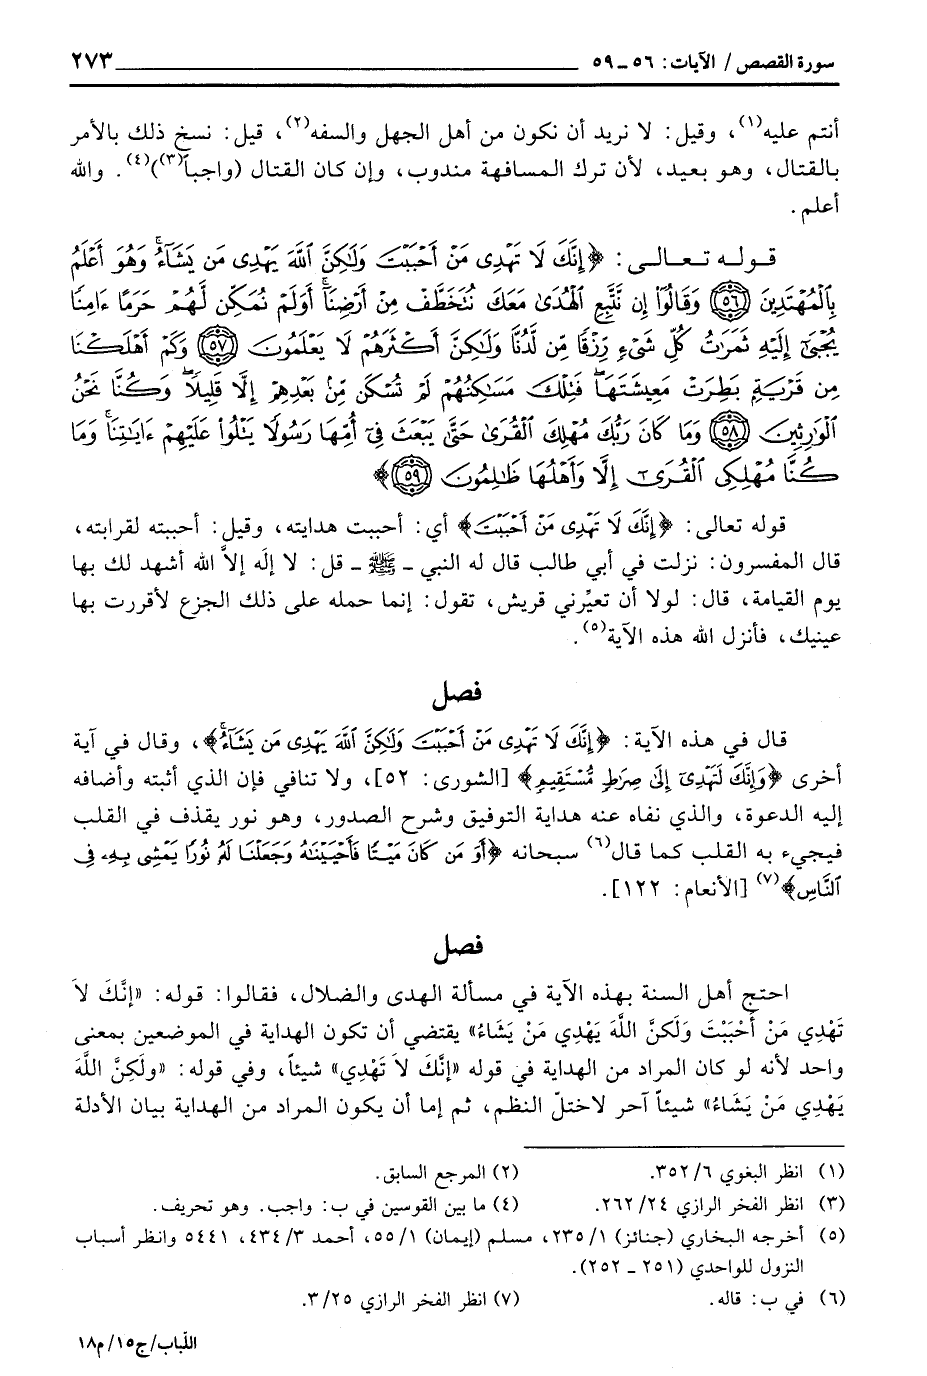 سورة القصص / الآيات: ٥٦ ـ ٥٩ ٢٧٣
أنتم عليه(١)، وقيل: لا نريد أن نكون من أهل الجهل والسفه(٢)، قيل: نسخ ذلك بالأمر
بالقتال، وهو بعيد، لأن ترك المسافهة مندوب، وإن كان القتال (واجباً(٣))(٤). والله
أعلم.
قوله تعالى: ﴿إِنَّكَ لَا تَهْدِى مَنْ أَحْبَبْتَ وَلَٰكِنَّ ٱللَّهَ يَهْدِى مَن يَشَآءُ ۚ وَهُوَ أَعْلَمُ
بِٱلْمُهْتَدِينَ ٥٦ وَقَالُوٓا۟ إِن نَّتَّبِعِ ٱلْهُدَىٰ مَعَكَ نُتَخَطَّفْ مِنْ أَرْضِنَآ ۚ أَوَلَمْ نُمَكِّن لَّهُمْ حَرَمًا ءَامِنًا
يُجْبَىٰٓ إِلَيْهِ ثَمَرَٰتُ كُلِّ شَىْءٍ رِّزْقًا مِّن لَّدُنَّا وَلَٰكِنَّ أَكْثَرَهُمْ لَا يَعْلَمُونَ ٥٧ وَكَمْ أَهْلَكْنَا
مِن قَرْيَةٍۭ بَطِرَتْ مَعِيشَتَهَا ۖ فَتِلْكَ مَسَٰكِنُهُمْ لَمْ تُسْكَن مِّنۢ بَعْدِهِمْ إِلَّا قَلِيلًا ۖ وَكُنَّا نَحْنُ
ٱلْوَٰرِثِينَ ٥٨ وَمَا كَانَ رَبُّكَ مُهْلِكَ ٱلْقُرَىٰ حَتَّىٰ يَبْعَثَ فِىٓ أُمِّهَا رَسُولًا يَتْلُوا۟ عَلَيْهِمْ ءَايَٰتِنَا ۚ وَمَا
كُنَّا مُهْلِكِى ٱلْقُرَىٰٓ إِلَّا وَأَهْلُهَا ظَٰلِمُونَ ٥٩﴾
قوله تعالى: ﴿إِنَّكَ لَا تَهْدِى مَنْ أَحْبَبْتَ﴾ أي: أحببت هدايته، وقيل: أحببته لقرابته،
قال المفسرون: نزلت في أبي طالب قال له النبي ـ ﷺ ـ قل: لا إله إلاَّ الله أشهد لك بها
يوم القيامة، قال: لولا أن تعيِّرني قريش، تقول: إنما حمله على ذلك الجزع لأقررت بها
عينيك، فأنزل الله هذه الآية(٥).
فصل
قال في هذه الآية: ﴿إِنَّكَ لَا تَهْدِى مَنْ أَحْبَبْتَ وَلَٰكِنَّ ٱللَّهَ يَهْدِى مَن يَشَآءُ ۚ﴾، وقال في آية
أخرى ﴿وَإِنَّكَ لَتَهْدِىٓ إِلَىٰ صِرَٰطٍ مُّسْتَقِيمٍ﴾ [الشورى: ٥٢]، ولا تنافي فإن الذي أثبته وأضافه
إليه الدعوة، والذي نفاه عنه هداية التوفيق وشرح الصدور، وهو نور يقذف في القلب
فيجيء به القلب كما قال(٦) سبحانه ﴿أَوَ مَن كَانَ مَيْتًا فَأَحْيَيْنَٰهُ وَجَعَلْنَا لَهُۥ نُورًا يَمْشِى بِهِۦ فِى
ٱلنَّاسِ﴾(٧) [الأنعام: ١٢٢].
فصل
احتج أهل السنة بهذه الآية في مسألة الهدى والضلال، فقالوا: قوله: «إنَّكَ لاَ
تَهْدِي مَنْ أَحْبَبْتَ وَلَكنَّ اللَّهَ يَهْدِي مَنْ يَشَاءُ» يقتضي أن تكون الهداية في الموضعين بمعنى
واحد لأنه لو كان المراد من الهداية في قوله «إنَّكَ لاَ تَهْدِي» شيئاً، وفي قوله: «ولَكِنَّ اللَّهَ
يَهْدِي مَنْ يَشَاءُ» شيئاً آحر لاختلّ النظم، ثم إما أن يكون المراد من الهداية بيان الأدلة
(١) انظر البغوي ٦/ ٣٥٢. (٢) المرجع السابق.
(٣) انظر الفخر الرازي ٢٤/ ٢٦٢. (٤) ما بين القوسين في ب: واجب. وهو تحريف.
(٥) أخرجه البخاري (جنائز) ١/ ٢٣٥، مسلم (إيمان) ١/ ٥٥، أحمد ٣/ ٤٣٤، ٥٤٤١ وانظر أسباب
النزول للواحدي (٢٥١ ـ ٢٥٢).
(٦) في ب: قاله. (٧) انظر الفخر الرازي ٢٥/ ٣.
اللّباب/ج١٥/م١٨